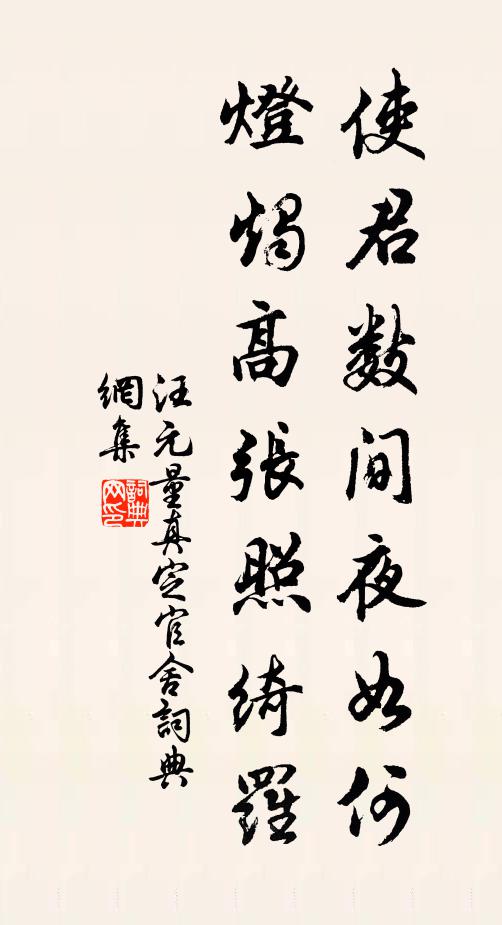 使君數間夜如何
燈燭高張照綺羅
汪元量真定官舍詞典
網集
詞典
网印